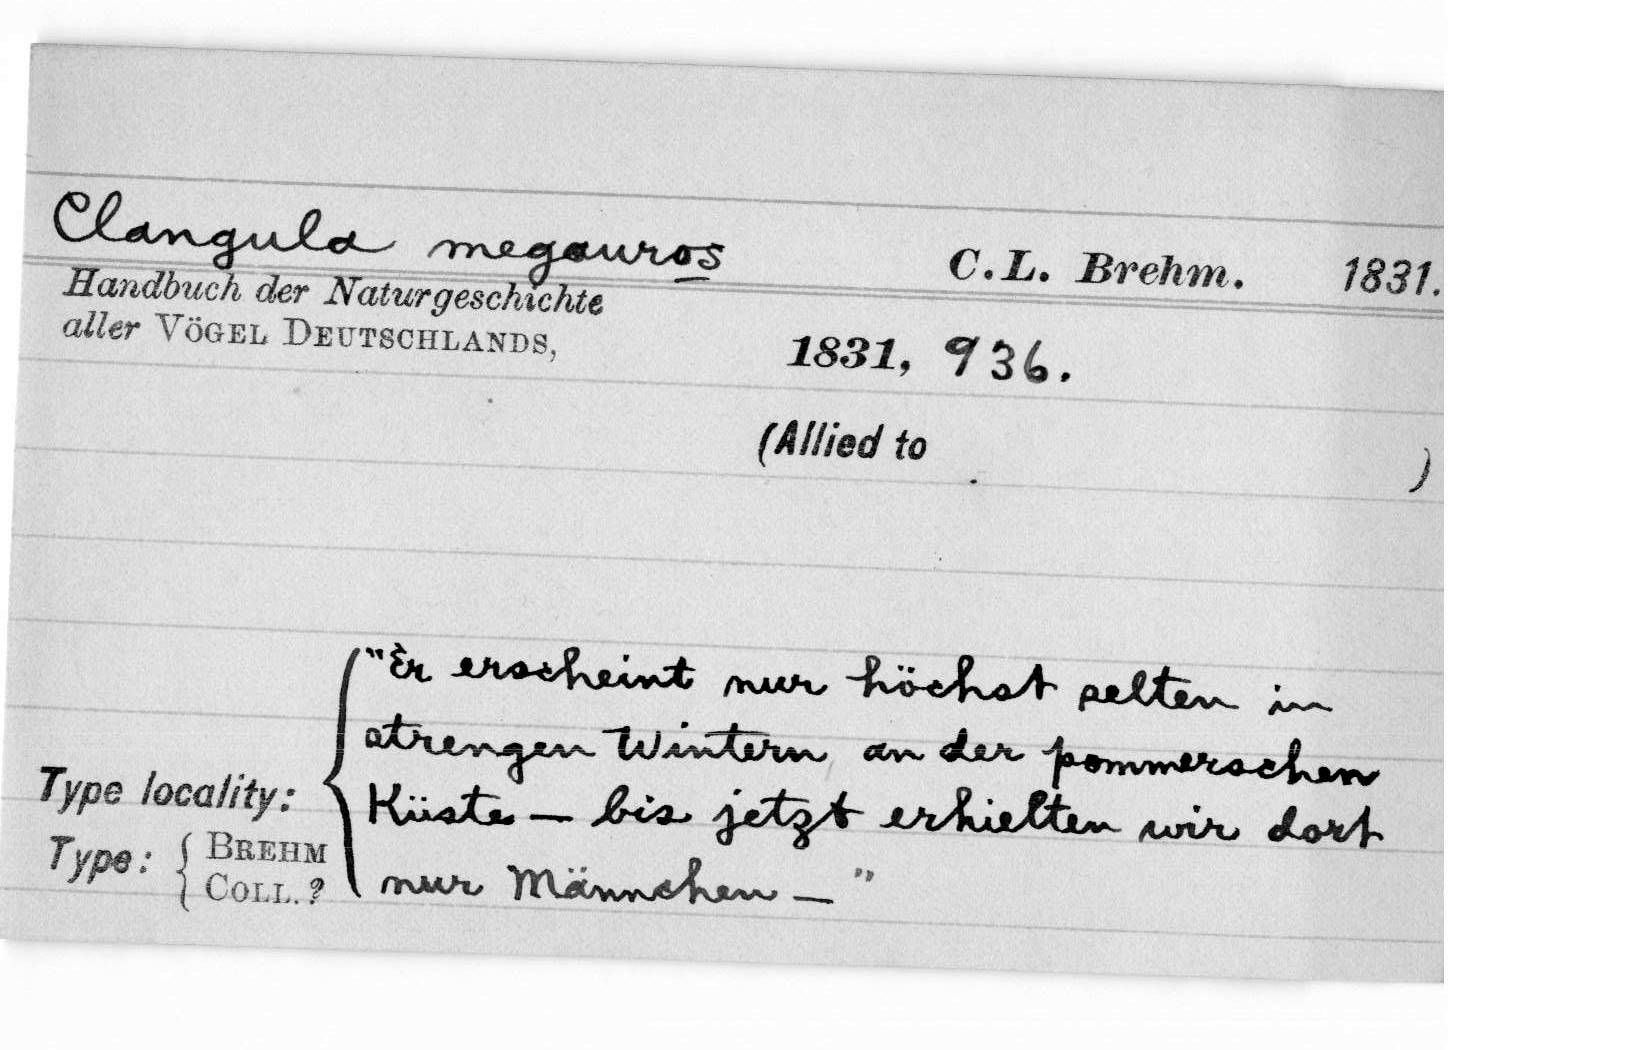 Clangula megauros C. L. Brehm. 1831.
Handbuch der Naturgeschichte
aller VÖGEL DEUTSCHLANDS, 1831, 936.
(Allied to )
"Er erscheint nur höchst selten in
strengen Wintern an der pommerschen
Type locality: Küste — bis jetzt erhielten wir dort
Type: BREHM COLL. ? nur Männchen — "